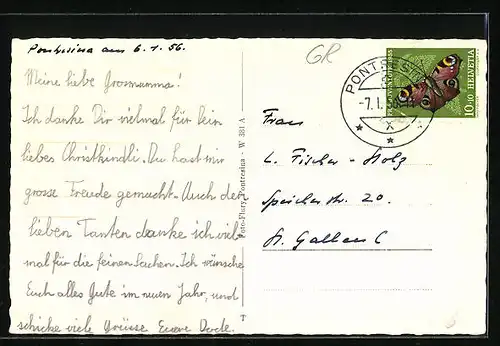 Pontresina am 6.1.56.
GR
Meine liebe Grosmamma!
Ich danke Dir vielmal für Dein
liebes Christkindli. Du hast mir
grosse Freude gemacht. Auch den
lieben Tanten danke ich viel
mal für die feinen Sachen. Ich wünsche
Euch alles Gute im neuen Jahr, und
schicke viele Grüsse Euere Dorle.
Foto-Flury, Pontresina - W 381 A
T
PONTRESINA
-7.I.56
HELVETIA
10+10
Frau
L. Fischer-Holz
Speicherstr. 20.
St. Gallen C